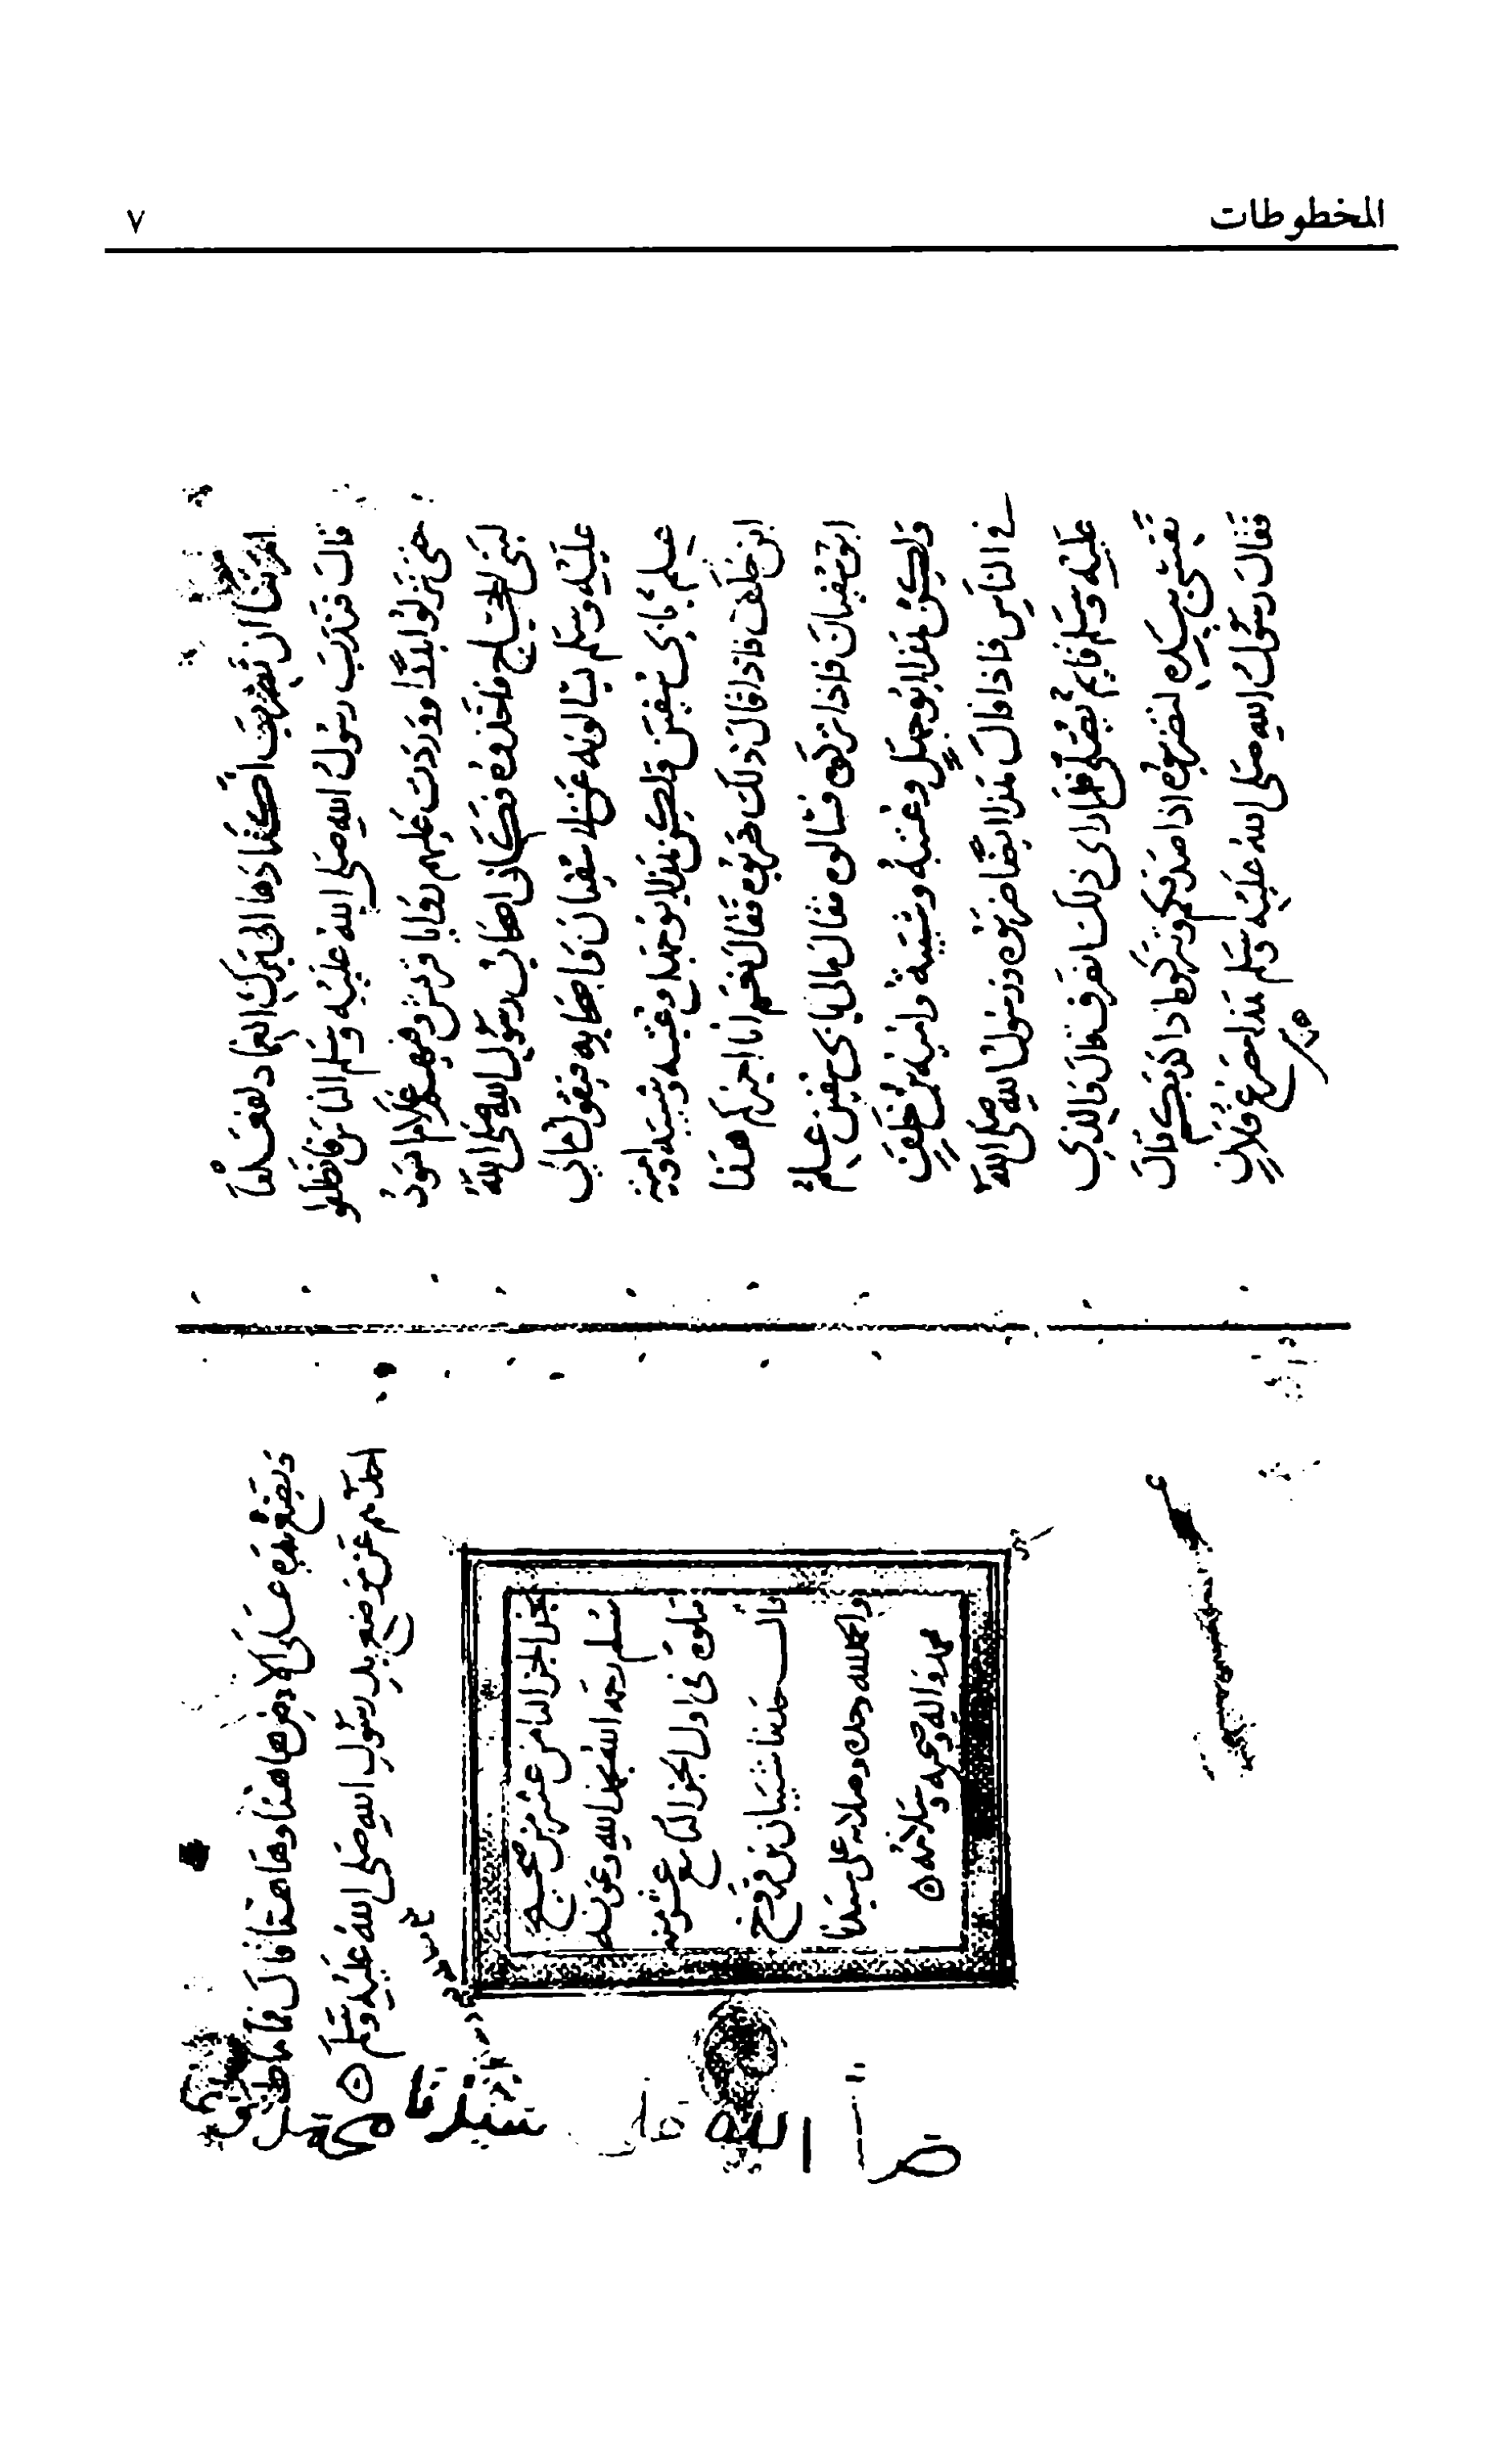 المخطوطات
٧
امرتنا ان نضرب اكبادها الى برك الغماد لفعلنا
قال فندب رسول الله صلى الله عليه وسلم الناس فانطلقوا
حتى نزلوا بدرا ووردت عليهم روايا قريش وفيهم غلام اسود
لبنى الحجاج فاخذوه فكان اصحاب رسول الله صلى الله
عليه وسلم يسالونه عن ابى سفيان واصحابه فيقول مالى
علم بابى سفين ولكن هذا ابو جهل وعتبه وشيبه وامية
ابن خلف فاذا قال ذلك ضربوه فقال نعم انا اخبركم هذا
ابو سفيان فاذا تركوه فسالوه فقال مالى بابى سفين علم
ولكن هذا ابو جهل وعتبة وشيبة وامية بن خلف
في الناس فاذا قال هذا ايضا ضربوه ورسول الله صلى الله
عليه وسلم قايم يصلى فلما راى ذلك انصرف قال والذي
نفسي بيده لتضربوه اذا صدقكم وتتركوه اذا كذبكم قال
فقال رسول الله صلى الله عليه وسلم هذا مصرع فلان
ويضع يده على الارض هاهنا وهاهنا قال فما ماط
احدهم عن موضع يد رسول الله صلى الله عليه وسلم ٥
نجز الجزء الثامن عشر من صحيح
مسلم رحمه الله بحمد الله وعونه
يتلوه في اول الجزء التاسع عشر منه
قال حدثنا شيبان بن فروخ
والحمد لله وحده وصلاته على سيدنا
محمد واله وصحبه وسلامه ٥
الله
سيدنا
محمد